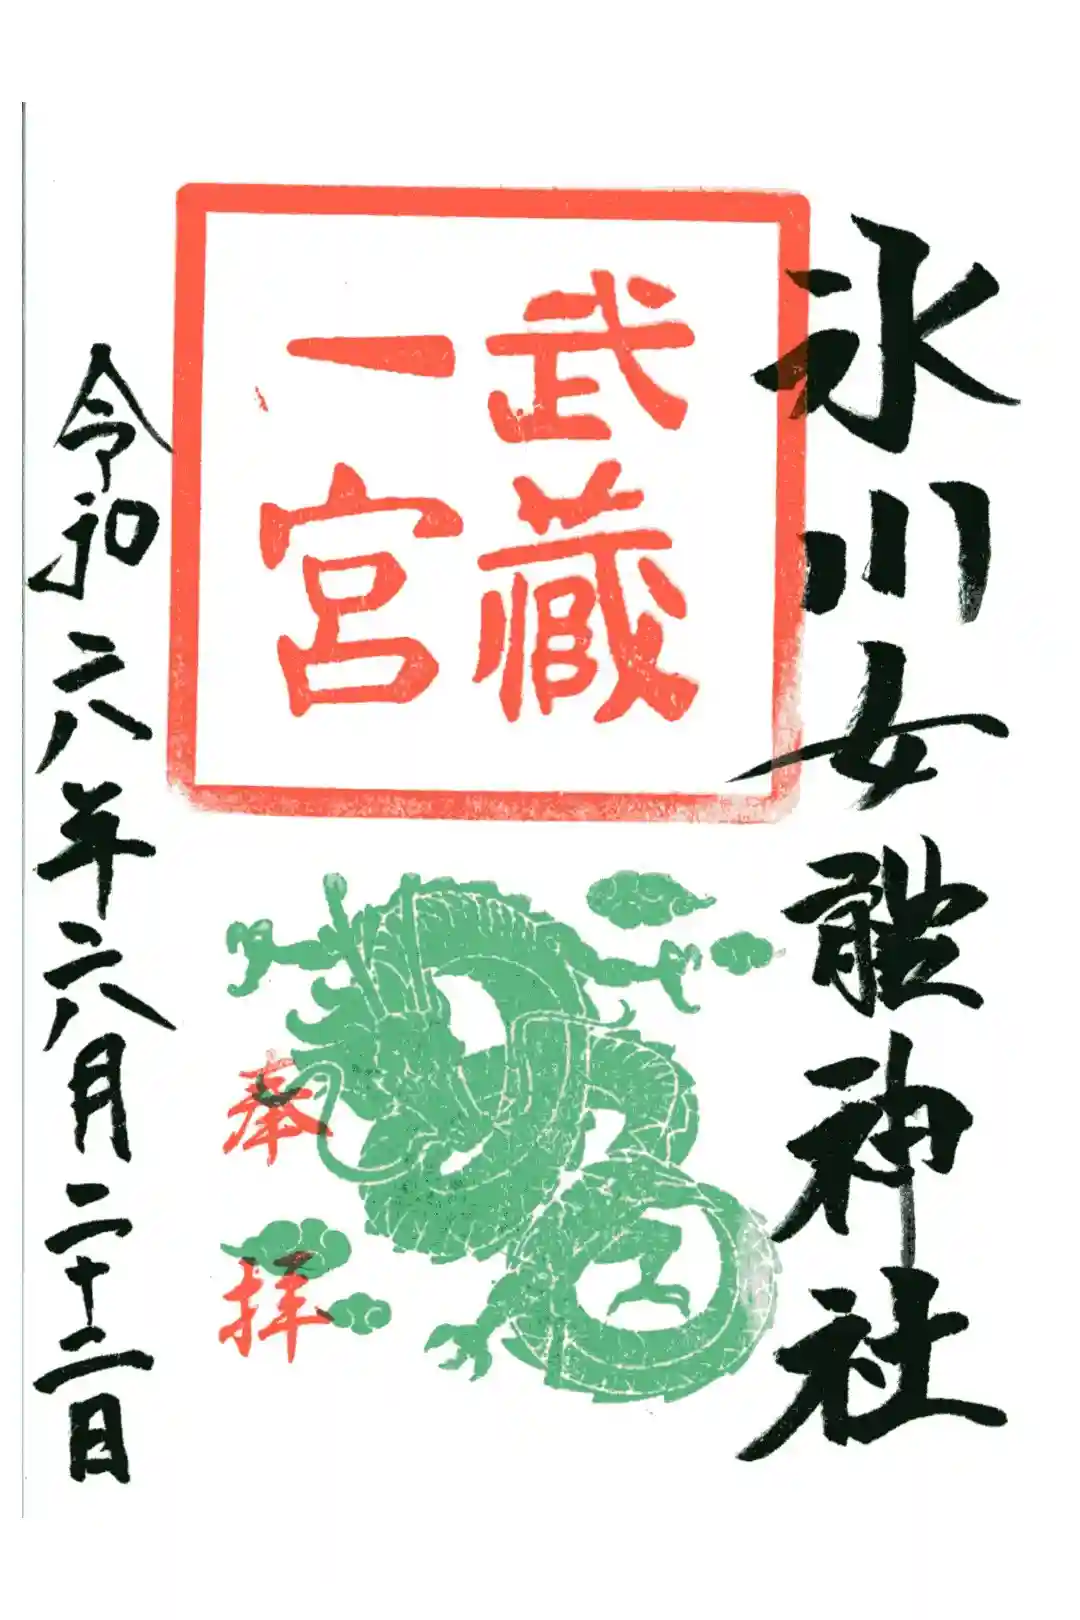 氷川女體神社
武藏
一宮
奉拝
令和六年六月二十二日